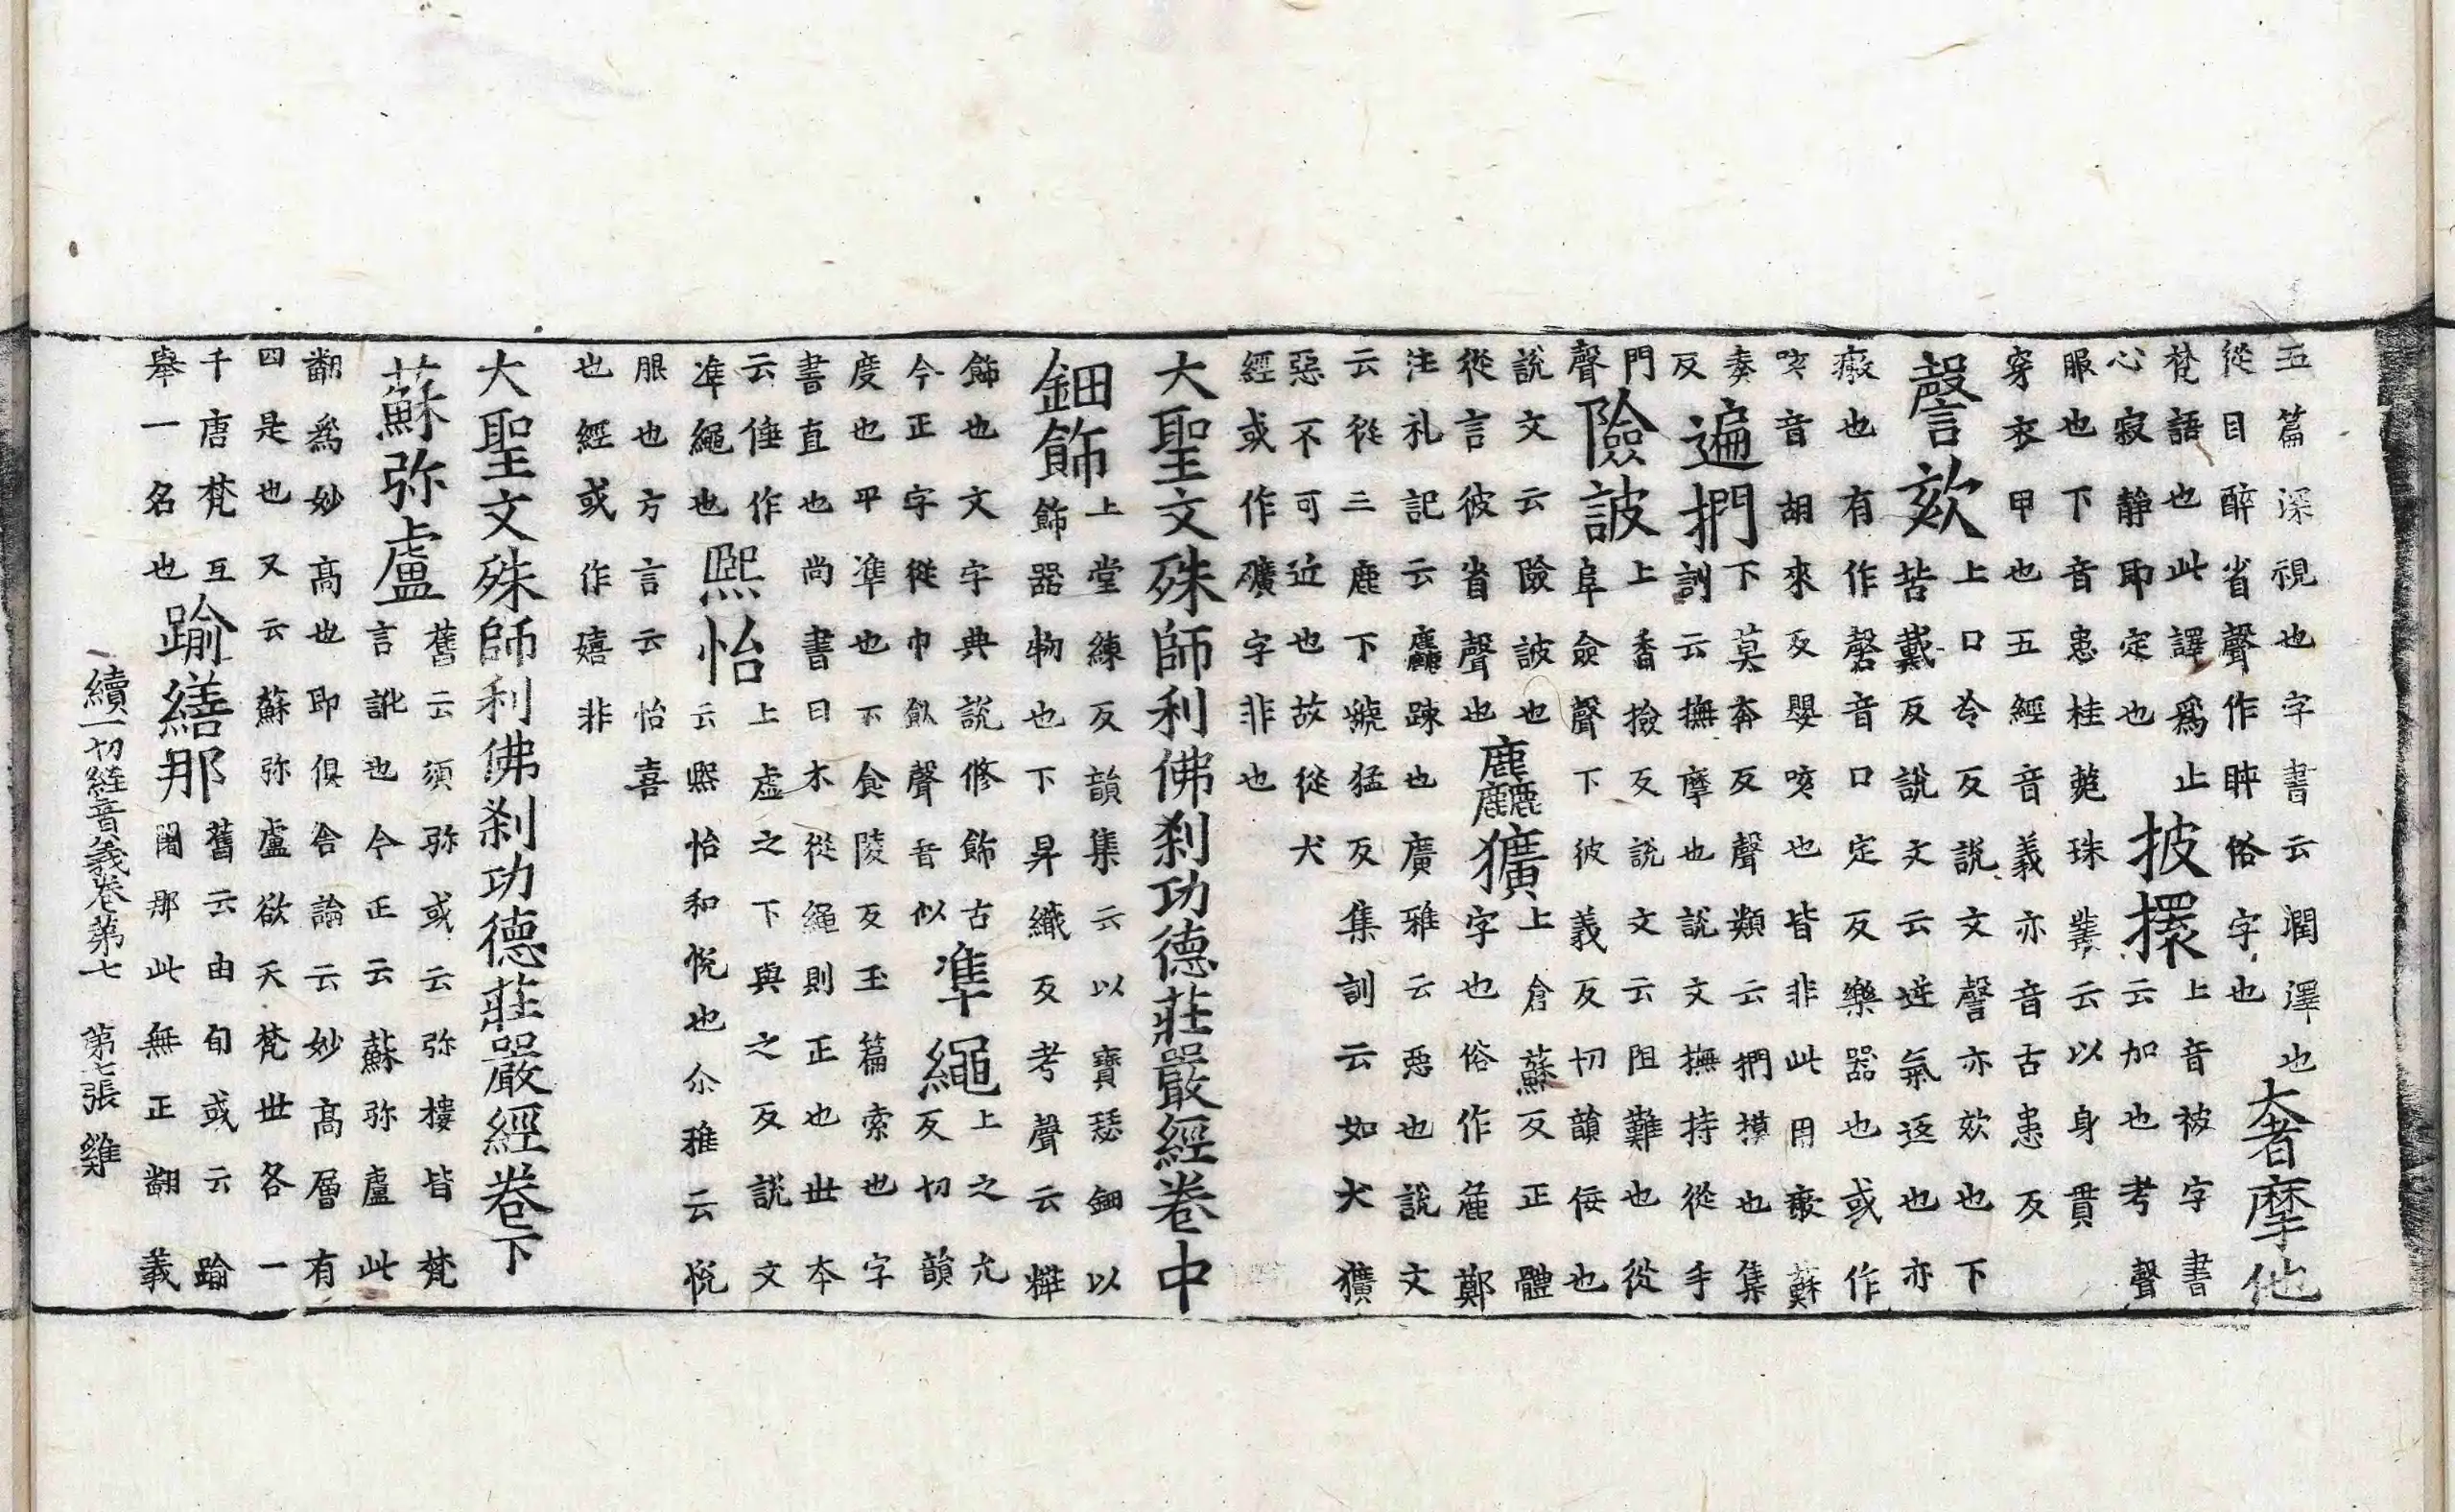 五篇深視也字書云潤澤也
從目酔省聲作睟俗字也
奢摩他
梵語也此譯爲止
心寂静即定也
披擐
上音被字書
云加也考聲
服也下音患桂苑珠藂云以身貫
穿衣甲也五經音義亦音古患反
謦欬
上口冷反說文謦亦欬也下
苦戴反說文云逆氣返也亦
瘶也有作磬音口定反樂器也或作
咳音胡來反嬰咳也皆非此用瘶蘇
奏
反
遍捫
下莫奔反聲類云捫摸也集
訓云撫摩也說文撫持從手
門
聲
險詖
上香撿反說文云阻難也從
阜僉聲下彼義反切韻佞也
說文云險詖也
從言彼省聲也
麤獷
上倉蘇反正體
字也俗作麁鄭
注礼記云麤踈也廣雅云惡也說文
云從三鹿下虢猛反集訓云如犬獷
惡不可近也故從犬
經或作礦字非也
大聖文殊師利佛刹功德莊嚴經卷中
鈿飾
上堂練反韻集云以寶瑟鈿以
飾器物也下昇織反考聲云糚
飾也文字典說修飾古
今正字從巾飤聲音似
準繩
上之允
反切韻
度也平準也下食陵反玉篇索也字
書直也尚書曰木從繩則正也世本
云倕作
準繩也
熙怡
上虚之下與之反說文
云熙怡和悅也尒雅云悅
服也方言云怡喜
也經或作嬉非
大聖文殊師利佛刹功德莊嚴經卷下
蘇弥盧
舊云須弥或云弥樓皆梵
言訛也今正云蘇弥盧此
翻爲妙高也即俱舍論云妙高層有
四是也又云蘇弥盧欲天梵世各一
千唐梵互
舉一名也
踰繕那
舊云由旬或云踰
闍那此無正翻義
續一切經音義卷第七 第七張 雞